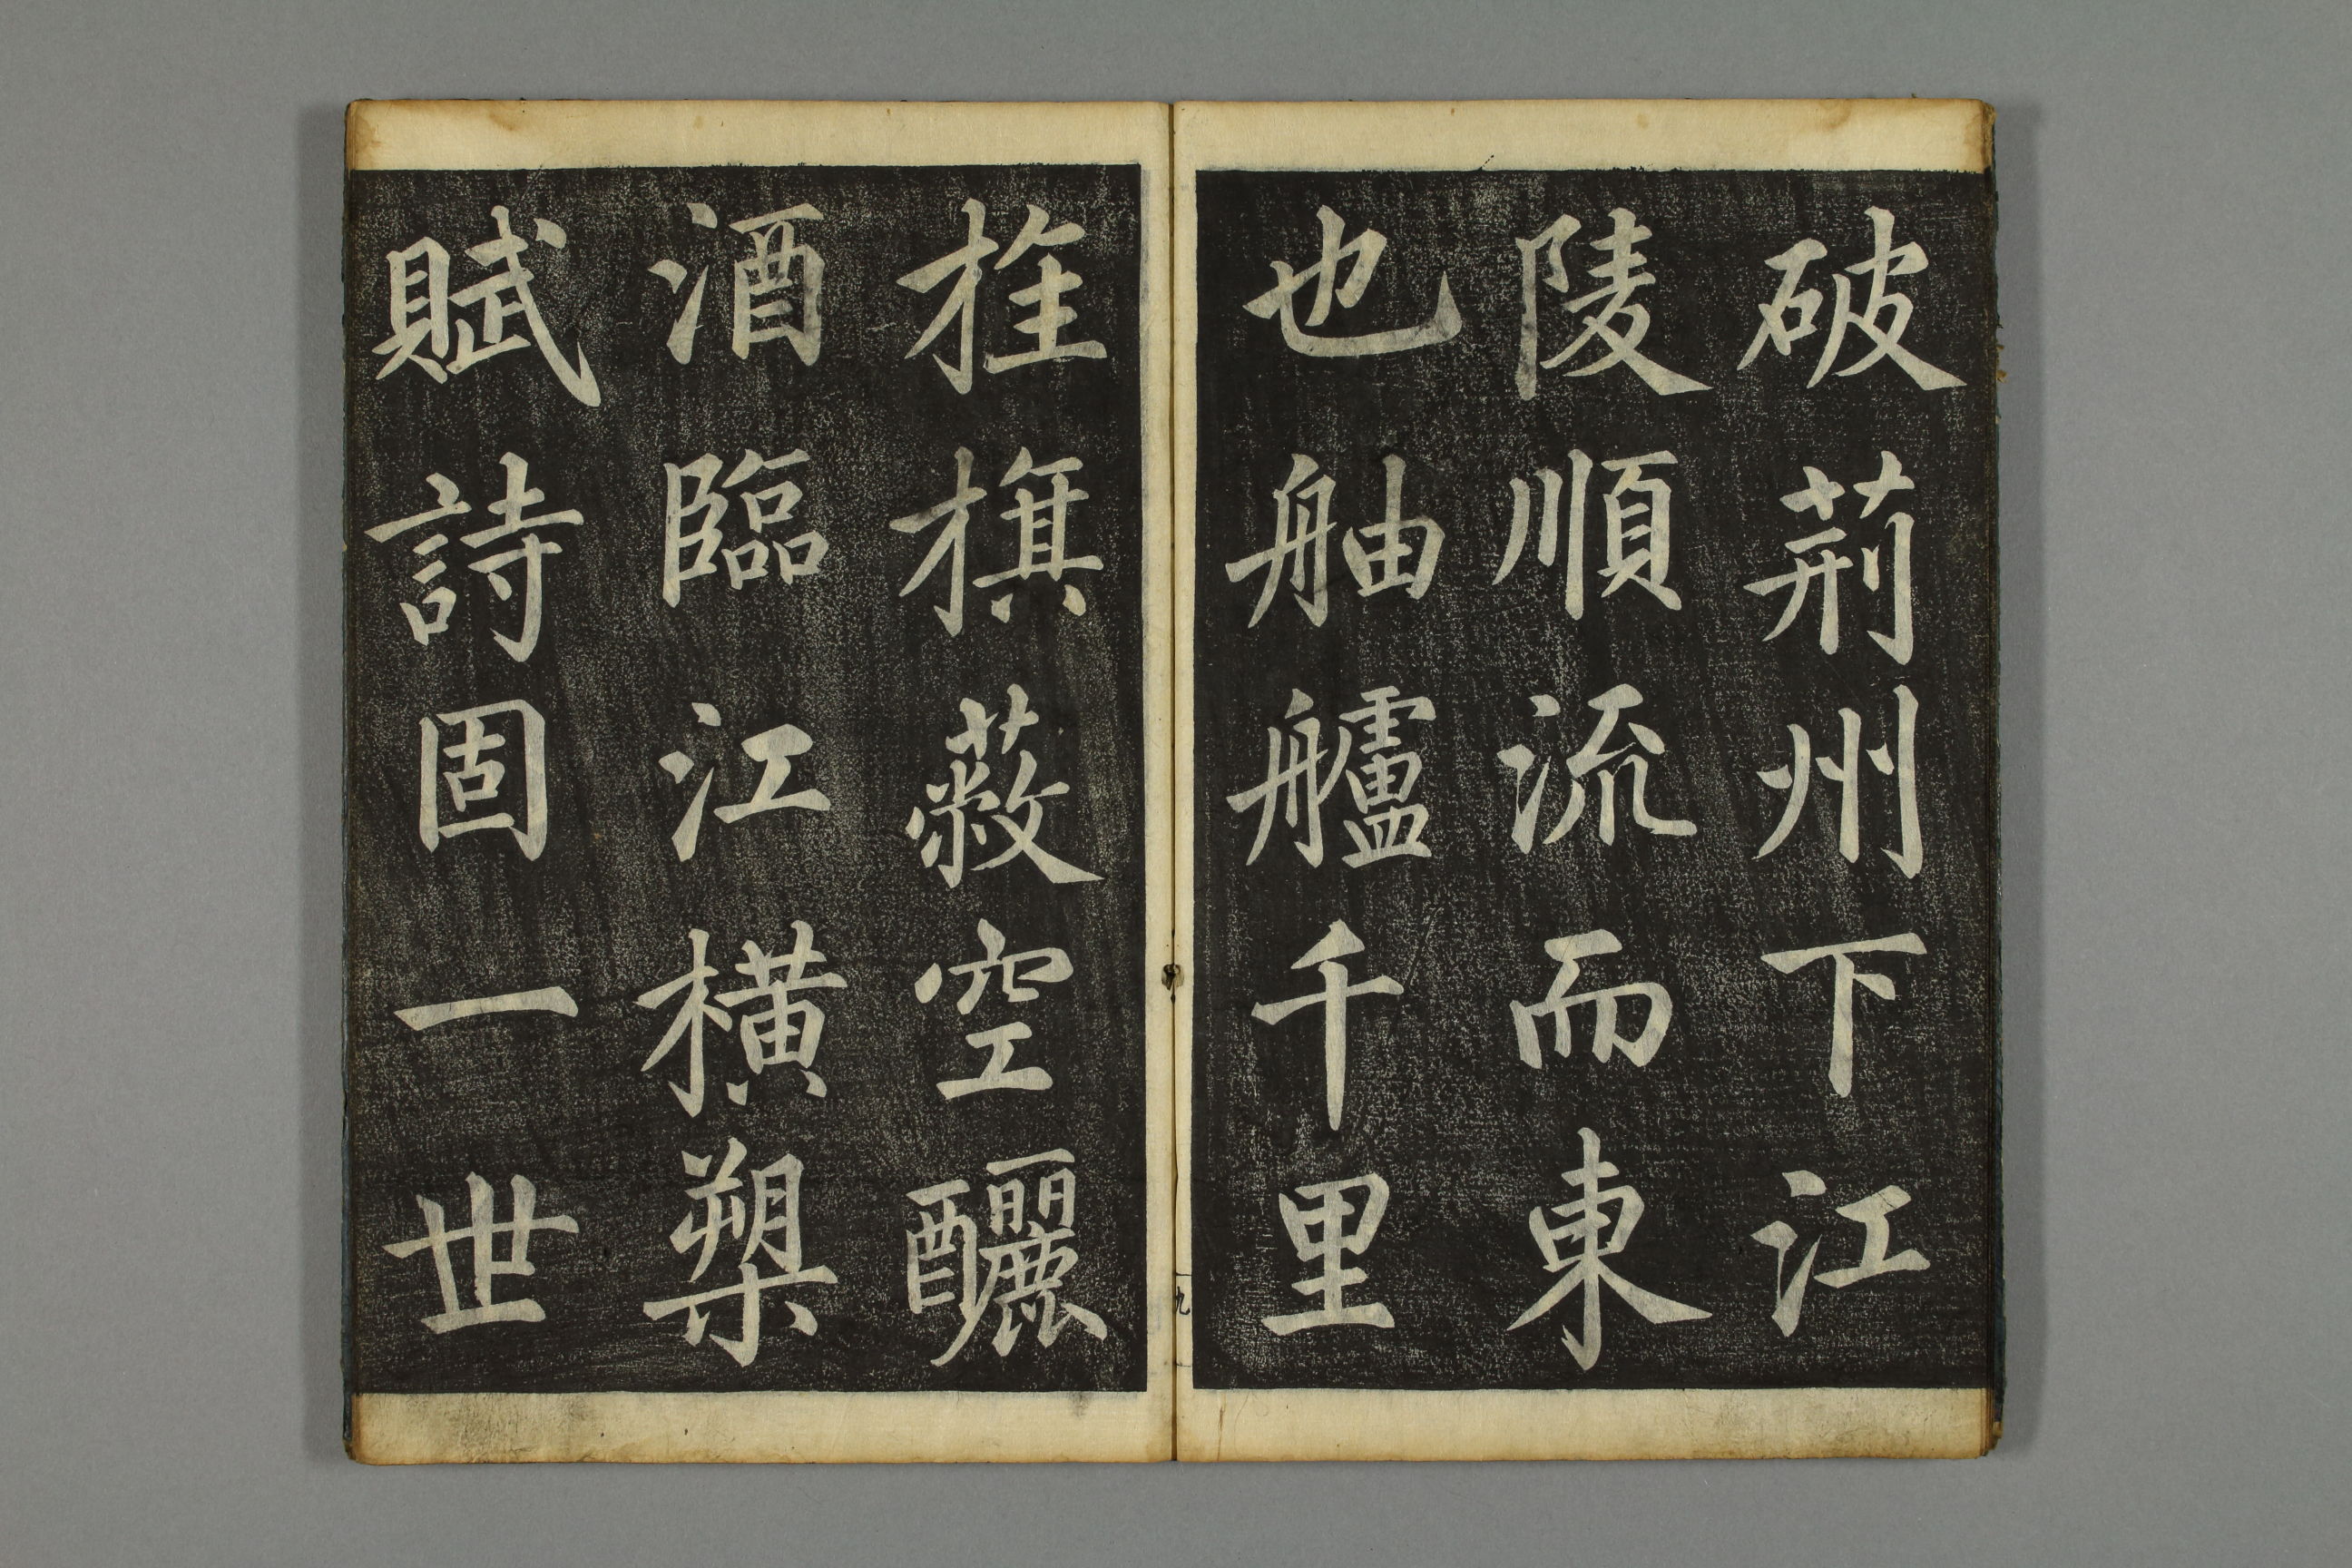 破荊州下江
陵順流而東
也舳艫千里
旌旗蔽空釃
酒臨江橫槊
賦詩固一世
九